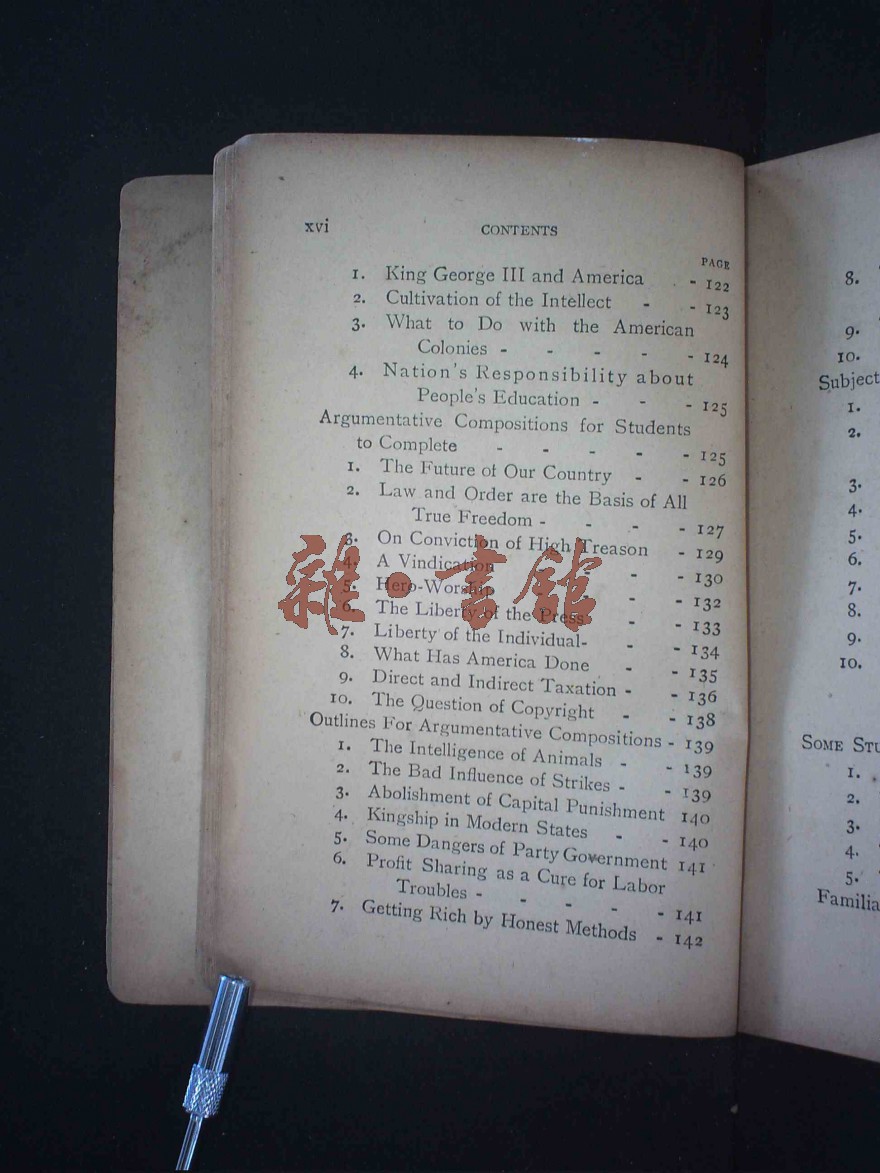 xvi CONTENTS
PAGE
1. King George III and America - 122
2. Cultivation of the Intellect - - 123
3. What to Do with the American
Colonies - - - - - 124
4. Nation's Responsibility about
People's Education - - - 125
Argumentative Compositions for Students
to Complete - - - - - 125
1. The Future of Our Country - - 126
2. Law and Order are the Basis of All
True Freedom - - - - 127
3. On Conviction of High Treason - 129
4. A Vindication - - 130
5. Hero-Worship - - 132
6. The Liberty of the Press - - 133
7. Liberty of the Individual- - - 134
8. What Has America Done - - 135
9. Direct and Indirect Taxation - - 136
10. The Question of Copyright - - 138
Outlines For Argumentative Compositions - 139
1. The Intelligence of Animals - - 139
2. The Bad Influence of Strikes - - 139
3. Abolishment of Capital Punishment 140
4. Kingship in Modern States - - 140
5. Some Dangers of Party Government 141
6. Profit Sharing as a Cure for Labor
Troubles - - - - - 141
7. Getting Rich by Honest Methods - 142
雜·書館
8.
9.
10.
Subject
1.
2.
3.
4.
5.
6.
7.
8.
9.
10.
SOME STU
1.
2.
3.
4.
5.
Familia